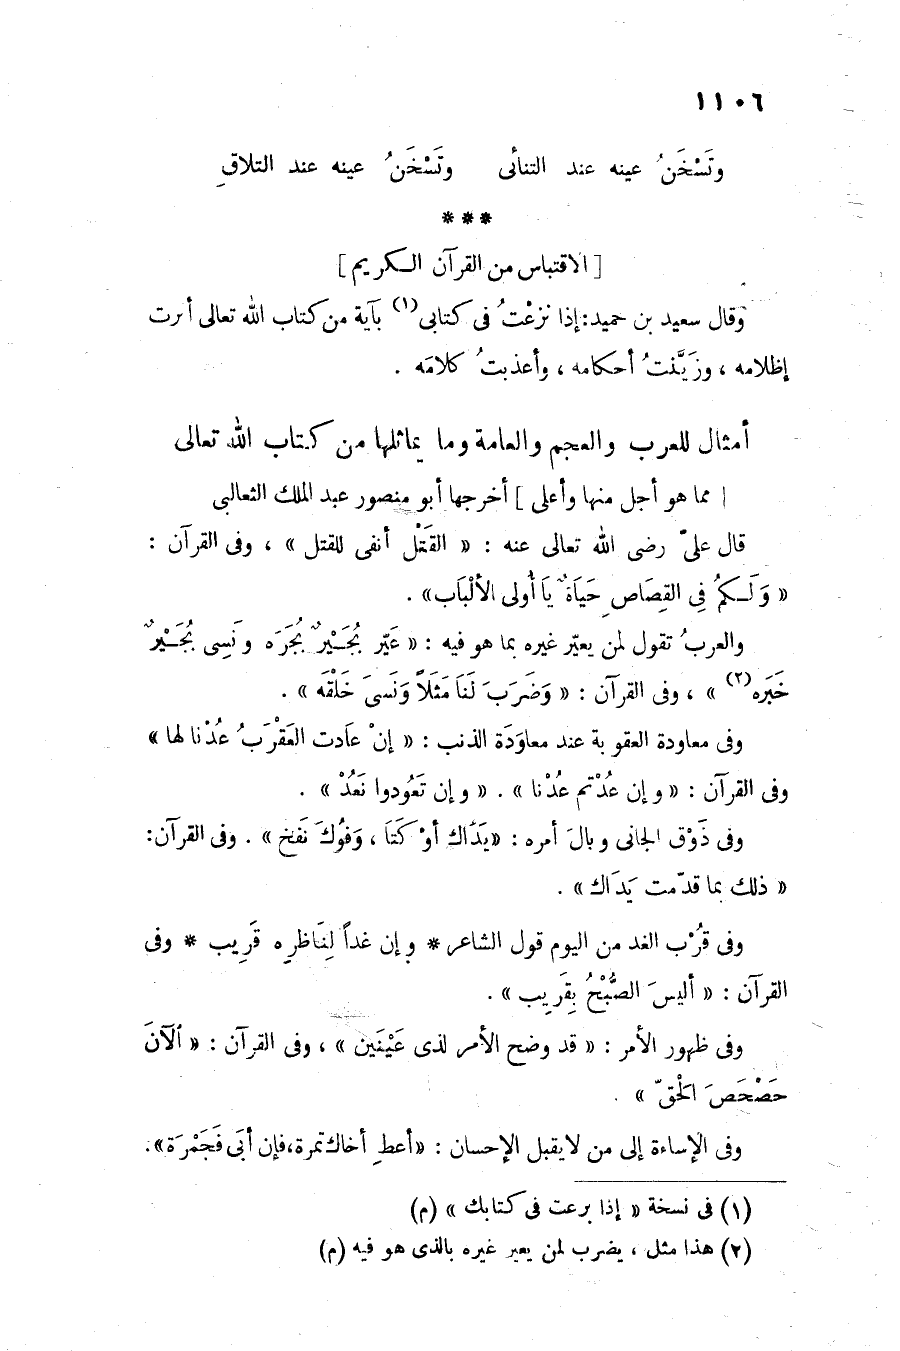 ١١٠٦
وتَسْخَنُ عينه عند التنائى وتَسْخَنُ عينه عند التلاقِ
***
[الاقتباس من القرآن الكريم]
وقال سعيد بن حميد: إذا نزعْتُ فى كتابى(١) بآية من كتاب الله تعالى أنرت
إظلامه ، وزَيَّنتُ أحكامه ، وأعذبتُ كلامَه .
أمثال للعرب والعجم والعامة وما يماثلها من كتاب الله تعالى
[ مما هو أجل منها وأعلى ] أخرجها أبو منصور عبد الملك الثعالبى
قال علىّ رضى الله تعالى عنه : « القَتْل أنفى للقتل » ، وفى القرآن :
« وَلَكمُ فِى القِصَاصِ حَيَاةٌ يَا أُولى الألْبَاب» .
والعربُ تقول لمن يعيّر غيره بما هو فيه : « عَيّر بُجَيْرٌ بُجَرَه ونَسِى بُجَيْرٌ
خَبَره(٢) » ، وفى القرآن : « وَضَرَبَ لَنَا مَثَلاً وَنَسىَ خَلْقَه » .
وفى معاودة العقوبة عند معاوَدَة الذنب : « إنْ عَادت العَقْرَبُ عُدْنا لها »
وفى القرآن : « وإن عُدْتم عُدْنا » . « وإن تَعُودوا نَعُدْ » .
وفى ذَوْق الجانى وبالَ أمره : «يَدَاك أوْ كَتَا ، وَفُوكَ نَفَخ » . وفى القرآن:
« ذلك بما قدّمت يَدَاك » .
وفى قُرْب الغد من اليوم قول الشاعر * وإن غداً لِنَاظرِه قَرِيب * وفى
القرآن : « أليسَ الصُّبْحُ بِقَرِيب » .
وفى ظهور الأمر : « قد وضح الأمر لذى عَيْنَين » ، وفى القرآن : « ٱلآنَ
حَصْحَصَ الحْقّ » .
وفى الإساءة إلى من لا يقبل الإحسان : «أعطِ أخاك تمرة،فإن أبَى فَجَمْرَة».
(١) فى نسخة « إذا برعت فى كتابك » (م)
(٢) هذا مثل ، يضرب لمن يعير غيره بالذى هو فيه (م)